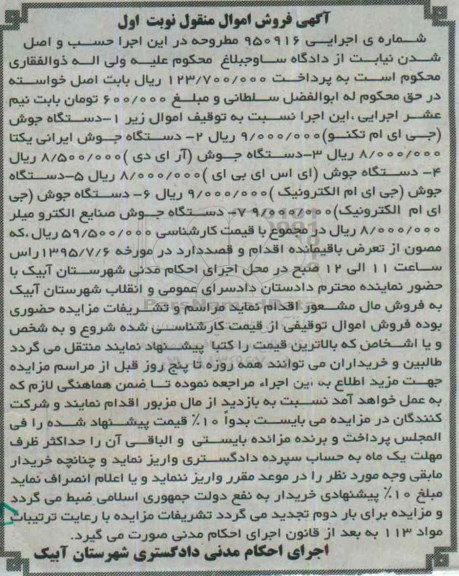 آگهی فروش اموال منقول نوبت اول
شماره ی اجرایی ۹۵۰۹۱۶ مطروحه در این اجرا حسب و اصل
شدن نیابت از دادگاه ساوجبلاغ محکوم علیه ولی اله ذوالفقاری
محکوم است به پرداخت ۱۲۳/۷۰۰/۰۰۰ ریال بابت اصل خواسته
در حق محکوم له ابوالفضل سلطانی و مبلغ ۶۰۰/۰۰۰ تومان بابت نیم
عشر اجرایی ،این اجرا نسبت به توقیف اموال زیر ۱-دستگاه جوش
(جی ای ام تکنو)۹/۰۰۰/۰۰۰ ریال ۲- دستگاه جوش ایرانی یکتا
۸/۰۰۰/۰۰۰ ریال ۳-دستگاه جوش (آر ای دی )۸/۵۰۰/۰۰۰ ریال
۴- دستگاه جوش (ای اس ای بی ای )۸/۰۰۰/۰۰۰ ریال ۵-دستگاه
جوش (جی ای ام الکترونیک )۹/۰۰۰/۰۰۰ ریال ۶- دستگاه جوش (جی
ای ام الکترونیک)۹/۰۰۰/۰۰۰ ۷- دستگاه جوش صنایع الکترو میلر
۸/۰۰۰/۰۰۰ ریال در مجموع با قیمت کارشناسی ۵۹/۵۰۰/۰۰۰ ریال ،که
مصون از تعرض باقیمانده اقدام و قصددارد در مورخه ۱۳۹۵/۷/۶ راس
ساعت ۱۱ الی ۱۲ صبح در محل اجرای احکام مدنی شهرستان آبیک با
حضور نماینده محترم دادستان دادسرای عمومی و انقلاب شهرستان آبیک
به فروش مال مشعور اقدام نماید مراسم و تشریفات مزایده حضوری
بوده فروش اموال توقیفی از قیمت کارشناسی شده شروع و به شخص
و یا اشخاص که بالاترین قیمت را کتبا پیشنهاد نمایند منتقل می گردد
طالبین و خریداران می توانند همه روزه تا پنج روز قبل از مراسم مزایده
جهت مزید اطلاع به این اجراء مراجعه نموده تا ضمن هماهنگی لازم که
به عمل خواهد آمد نسبت به بازدید از مال مزبور اقدام نمایند و شرکت
کنندگان در مزایده می بایست بدواً ۱۰٪ قیمت پیشنهاد شده را فی
المجلس پرداخت و برنده مزائده بایستی و الباقی آن را حداکثر ظرف
مهلت یک ماه به حساب سپرده دادگستری واریز نماید و چنانچه خریدار
مابقی وجه مورد نظر را در موعد مقرر واریز ننماید و یا اعلام انصراف نماید
مبلغ ۱۰٪ پیشنهادی خریدار به نفع دولت جمهوری اسلامی ضبط می گردد
و مزایده برای بار دوم تجدید می گردد تشریفات مزایده با رعایت ترتیبات
مواد ۱۱۳ به بعد از قانون اجرای احکام مدنی صورت می گیرد.
اجرای احکام مدنی دادگستری شهرستان آبیک